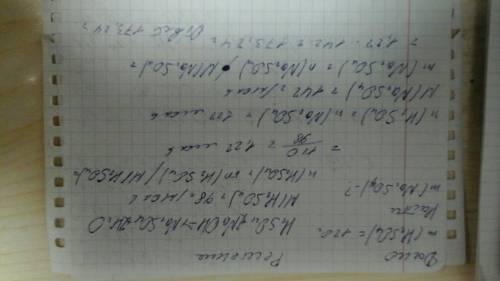 Дано
Решение
m(H₂SO₄) = 120г
H₂SO₄+2NaOH=Na₂SO₄+2H₂O
Найти
M(H₂SO₄) = 98г/моль
m(Na₂SO₄)-?
n(H₂SO₄) = m(H₂SO₄)/M(H₂SO₄)=
= 120/98 = 1,22 моль
n(H₂SO₄) = n(Na₂SO₄) = 1,22 моль
M(Na₂SO₄) = 142 г/моль
m(Na₂SO₄) = n(Na₂SO₄) · M(Na₂SO₄) =
= 1,22 · 142 = 173,24г
Ответ 173,24г